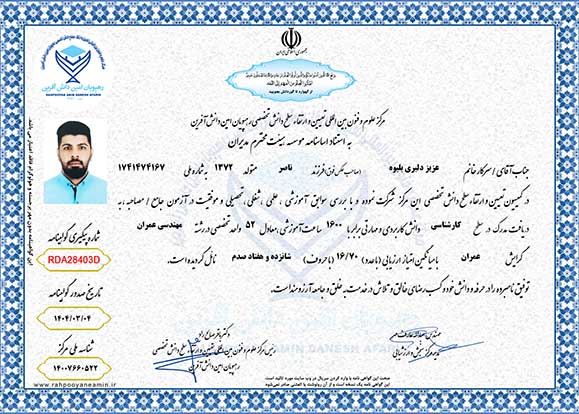 رهپویان امین دانش آفرین
RAHPOOYANE AMIN DANESH AFARIN
جمهوری اسلامی ایران
ز گهواره تا گور دانش بجویید
مرکز علوم و فنون بین المللی تعیین و ارتقاء سطح دانش تخصصی رهپویان امین دانش آفرین
به استناد اساسنامه موسسه، هیئت محترم مدیران
جناب آقای / سرکار خانم عزیز دلیری یلیوه (صاحب عکس فوق) فرزند ناصر متولد ۱۳۷۲ به شماره ملی ۱۷۴۱۴۷۴۱۶۷
در کمیسیون تعیین و ارتقاء سطح دانش تخصصی این مرکز شرکت نموده و با بررسی سوابق آموزشی، علمی، شغلی، تحصیلی و موفقیت در آزمون جامع / مصاحبه، به
دریافت مدرک در سطح کارشناسی دانش کاربردی و مهارتی برابر با ۱۶۰۰ ساعت آموزشی، معادل ۵۲ واحد تخصصی در رشته مهندسی عمران
گرایش عمران با میانگین امتیاز ارزیابی (با عدد) ۱۶/۷۰ (با حروف) شانزده و هفتاد صدم نائل گردیده است.
توفیق نامبرده را در حرفه و دانش خود و کسب رضای خالق و تلاش در خدمت به خلق و جامعه آرزومند است.
شماره پیگیری گواهینامه
RDA28403D
تاریخ صدور گواهینامه
۱۴۰۴/۰۳/۰۴
شناسه ملی مرکز
۱۴۰۰۷۶۶۰۵۲۲
www.rahpooyaneamin.ir
رئیس مرکز علوم و فنون بین المللی تعیین و ارتقاء سطح دانش تخصصی
رهپویان امین دانش آفرین
AMIN DANESH AFARIN
صحت این گواهی نامه با وارد کردن سریال در وب سایت مورد تائید است.